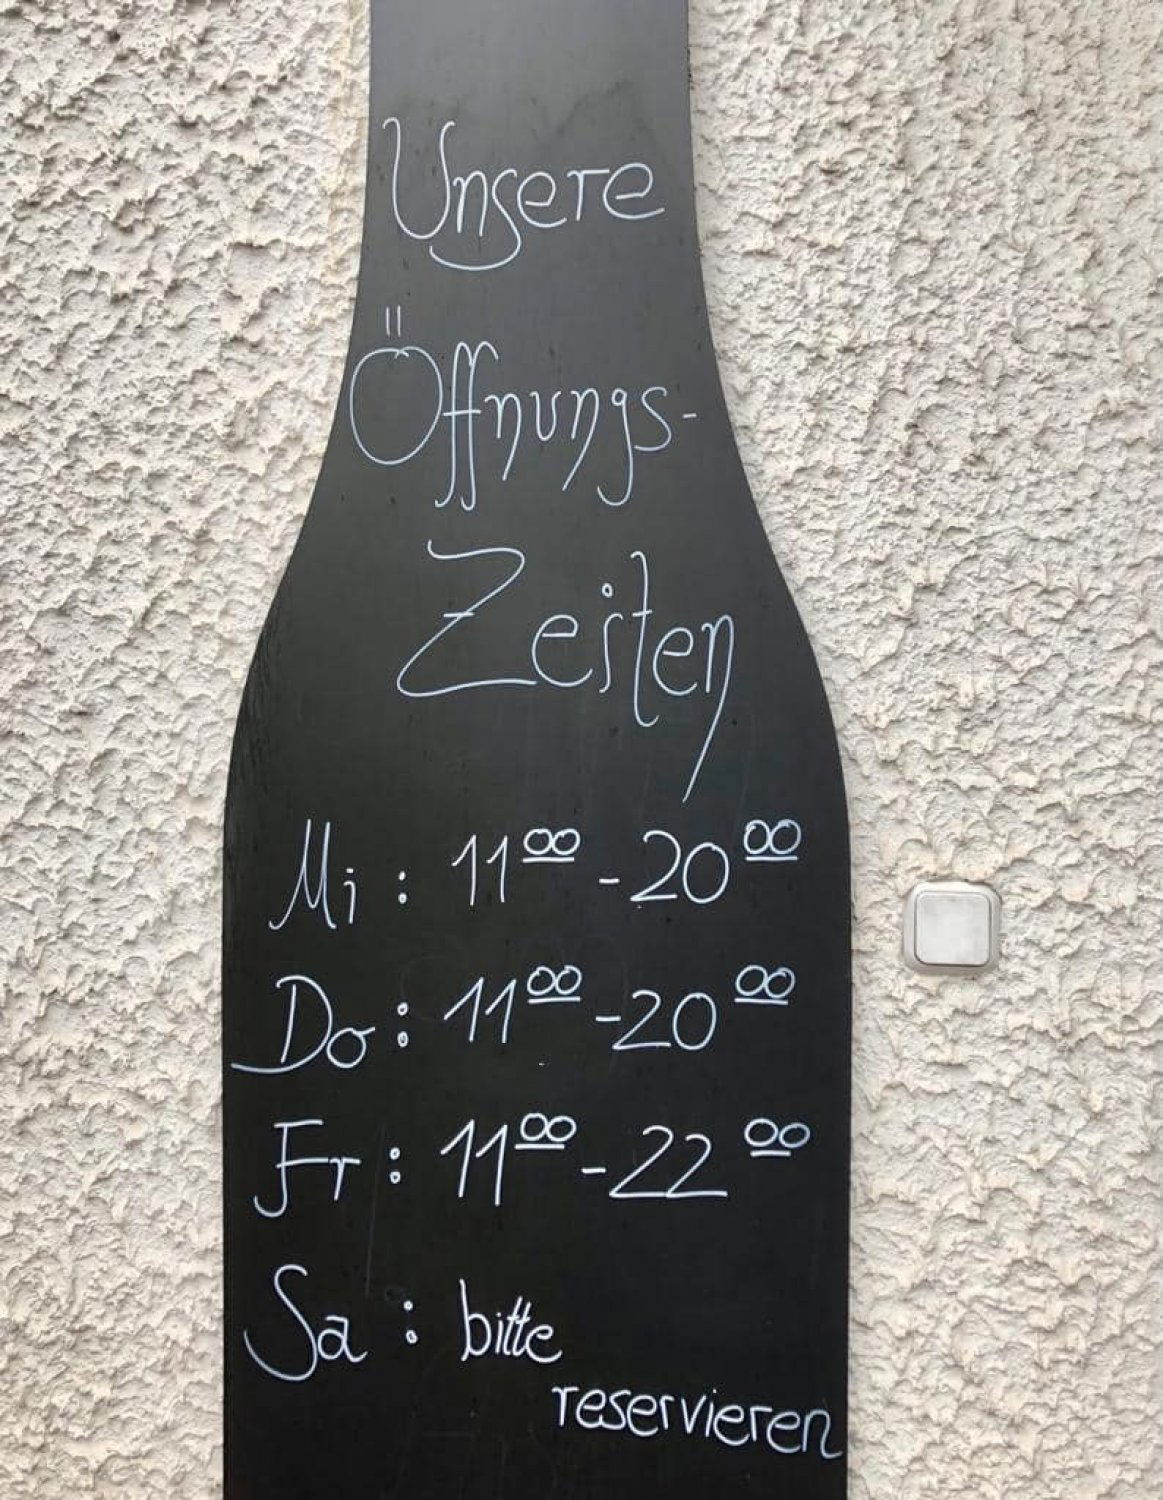 Unsere
Öffnungs-
Zeiten
Mi : 11⁰⁰ - 20⁰⁰
Do : 11⁰⁰ - 20⁰⁰
Fr : 11⁰⁰ - 22⁰⁰
Sa : bitte
reservieren